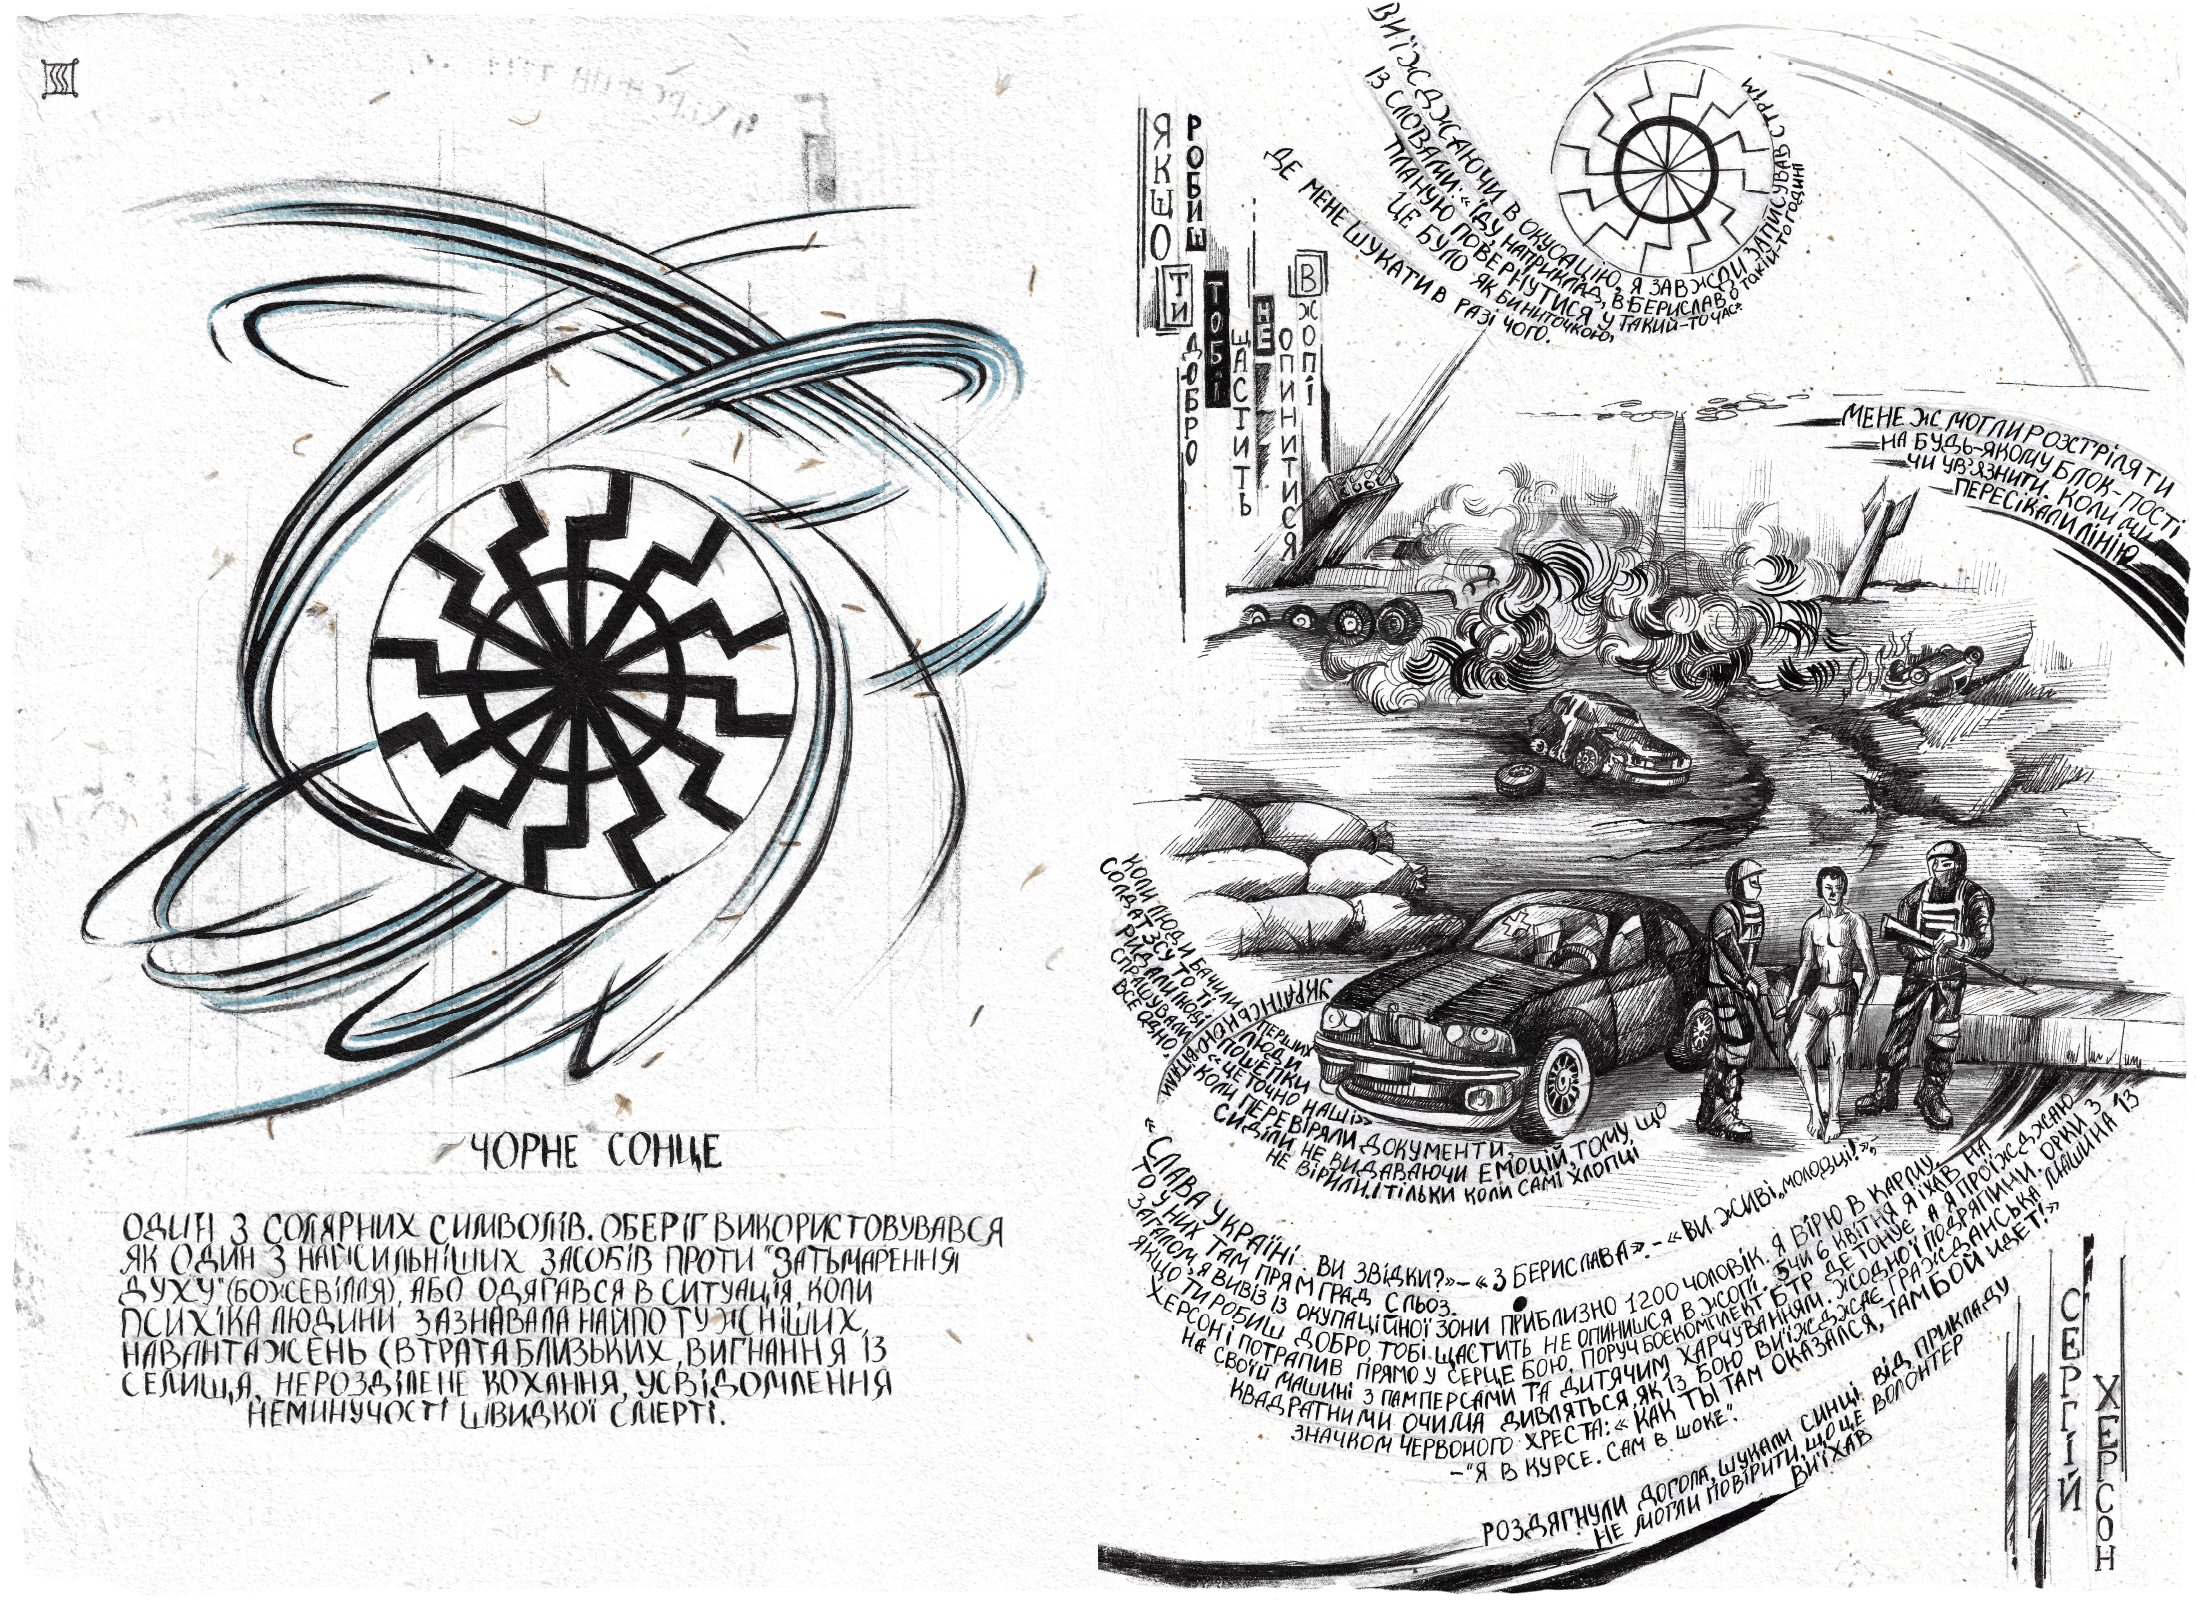 ЧОРНЕ СОНЦЕ
ОДИН З СОЛЯРНИХ СИМВОЛІВ. ОБЕРІГ ВИКОРИСТОВУВАВСЯ
ЯК ОДИН З НАЙСИЛЬНІШИХ ЗАСОБІВ ПРОТИ "ЗАТЬМАРЕННЯ
ДУХУ" (БОЖЕВІЛЛЯ), АБО ОДЯГАВСЯ В СИТУАЦІЯ, КОЛИ
ПСИХІКА ЛЮДИНИ ЗАЗНАВАЛА НАЙПОТУЖНІШИХ,
НАВАНТАЖЕНЬ (ВТРАТА БЛИЗЬКИХ, ВИГНАННЯ ІЗ
СЕЛИЩА, НЕРОЗДІЛЕНЕ КОХАННЯ, УСВІДОМЛЕННЯ
НЕМИНУЧОСТІ ШВИДКОЇ СМЕРТІ.
ЯКЩО
РОБИШ
ТИ
ДОБРО
ТОБІ
ЩАСТИТЬ
НЕ
ОПИНИТИСЯ
В
ЖОПІ
ВИЇЖДЖАЮЧИ В ОКУОАЦІЮ, Я ЗАВЖДИ ЗАПИСУВАВ СТРІМ
ІЗ СЛОВАМИ: «ЇДУ, НАПРИКЛАД, В БЕРИСЛАВ, О ТАКІЙ-ТО ГОДИНІ
ПЛАНУЮ ПОВЕРНУТИСЯ У ТАКИЙ-ТО ЧАС».
ЦЕ БУЛО ЯК БИ НИТОЧКОЮ,
ДЕ МЕНЕ ШУКАТИ В РАЗІ ЧОГО.
МЕНЕ Ж МОГЛИ РОЗСТРІЛЯТИ
НА БУДЬ-ЯКОМУ БЛОК-ПОСТІ
ЧИ УВ'ЯЗНИТИ. КОЛИ МИ
ПЕРЕСІКАЛИ ЛІНІЮ
КОЛИ ЛЮДИ БАЧИЛИ ПЕРШИХ
СОЛДАТ ЗСУ ТО ТІ ЛЮДИ
РИДАЛИ ІНОДІ ПОШЕПКИ
СПРАШУВАЛИ «ЦЕ ТОЧНО НАШІ»
ВСЕ ОДНО, КОЛИ ПЕРЕВІРЯЛИ ДОКУМЕНТИ,
СИДІЛИ НЕ ВИДАВАЮЧИ ЕМОЦІЙ, ТОМУ ЩО
НЕ ВІРИЛИ. І ТІЛЬКИ КОЛИ САМІ ХЛОПЦІ
УКРАЇНСЬКОЮ ВІТАЛИ
«СЛАВА УКРАЇНІ. ВИ ЗВІДКИ?» – «З БЕРИСЛАВА». – «ВИ ЖИВІ, МОЛОДЦІ!»,
ТО У НИХ ТАМ ПРЯМ ГРАД СЛЬОЗ.
ЗАГАЛОМ, Я ВИВІЗ ІЗ ОКУПАЦІЙНОЇ ЗОНИ ПРИБЛИЗНО 1200 ЧОЛОВІК. Я ВІРЮ В КАРМУ.
ЯКЩО ТИ РОБИШ ДОБРО, ТОБІ ЩАСТИТЬ НЕ ОПИНИШСЯ В ЖОПІ. 5 ЧИ 6 КВІТНЯ Я ЇХАВ НА
ХЕРСОН І ПОТРАПИВ ПРЯМО У СЕРЦЕ БОЮ, ПОРУЧ БОЄКОМПЛЕКТ БТР ДЕТОНУЄ, А Я ПРОЇЖДЖАЮ
НА СВОЇЙ МАШИНІ З ПАМПЕРСАМИ ТА ДИТЯЧИМ ХАРЧУВАННЯМ. ЖОДНОЇ ПОДРЯПИНИ. ОРКИ З
КВАДРАТНИМИ ОЧИМА ДИВЛЯТЬСЯ, ЯК ІЗ БОЮ ВИЇЖДЖАЄ ГРАЖДАНСЬКА МАШИНА ІЗ
ЗНАЧКОМ ЧЕРВОНОГО ХРЕСТА: «КАК ТЫ ТАМ ОКАЗАЛСЯ, ТАМ БОЙ ИДЕТ!»
–"Я В КУРСЕ. САМ В ШОКЕ".
РОЗДЯГНУЛИ ДОГОЛА, ШУКАЛИ СИНЦІ ВІД ПРИКЛАДУ
НЕ МОГЛИ ПОВІРИТИ, ЩО ЦЕ ВОЛОНТЕР
ВИЇХАВ
СЕРГІЙ
ХЕРСОН